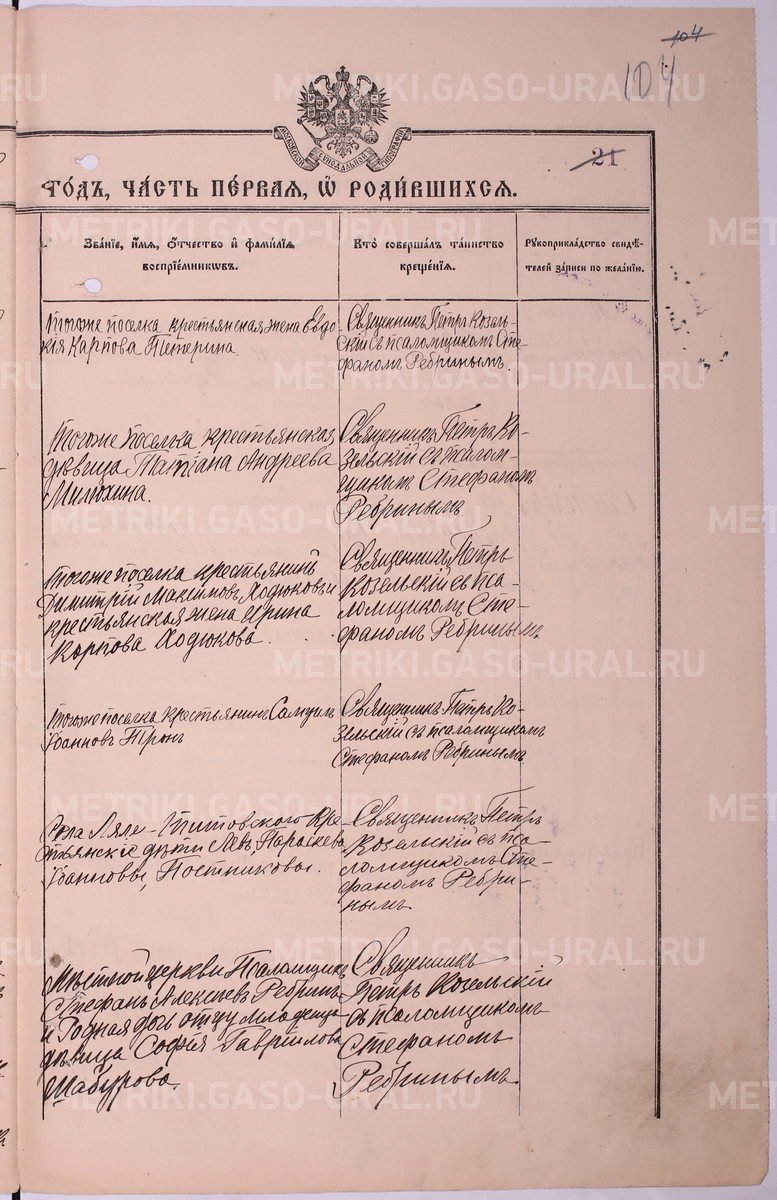 104
104
МОСКОВСКОЙ СѴНОДАЛЬНОЙ ТИПОГРАФІИ
21
го́дъ, ча́сть пе́рвая, ѡ҆ роди́вшихсѧ.
Зва́ніе, и҆́мѧ, ѻ҆́тчество и҆ фами́лїѧ
воспрїе́мникѡвъ.
Кто̀ соверша́лъ та́инство
креще́нїѧ.
Рꙋкоприкла́дство свидѣ́-
телей за́писи по жела́нїю.
Тогоже поселка крестьянская жена Евдо-
кія Карпова Петерина
Священникъ Петръ Козель-
скій съ псаломщикомъ Сте-
фаномъ Ребринымъ.
Тогоже поселка крестьянская
дѣвица Татіана Андреева
Милюхина.
Священникъ Петръ Ко-
зельскій съ псалом-
щикомъ Стефаномъ
Ребринымъ
Тогоже поселка крестьянинъ
Димитрій Максимовъ Ходюковъ и
крестьянская жена Ирина
Карпова Ходюкова.
Священникъ Петръ
Козельскій съ пса-
ломщикомъ Сте-
фаномъ Ребринымъ
Тогоже поселка крестьянинъ Самуилъ
Іоанновъ Тронъ
Священникъ Петръ Ко-
зельскій съ псаломщикомъ
Стефаномъ Ребринымъ
Села Ляле-Титовского кре-
стьянскіе дѣти Левъ, Параскева
Іоанновы, Постниковы.
Священникъ Петръ
Козельскій съ пса-
ломщикомъ Сте-
фаномъ Ребри-
нымъ
Мѣстной церкви Псаломщикъ
Стефанъ Алексіевъ Ребринъ
и Родная дочь отцу младенца
дѣвица Софія Гавріилова
Шабурова.
Священникъ
Петръ Козельскій
съ псаломщикомъ
Стефаномъ
Ребринымъ
METRIKI.GASO-URAL.RU